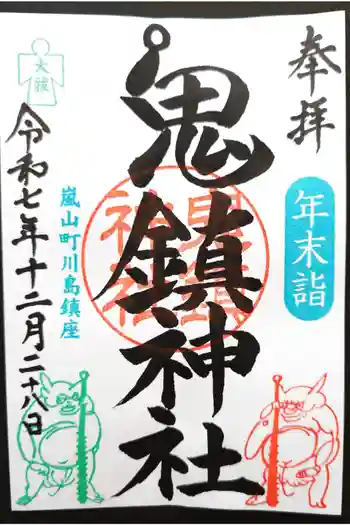 奉拝
年末詣
鬼鎮神社
鬼鎮
神社
嵐山町川島鎮座
大祓
令和七年十二月二十八日